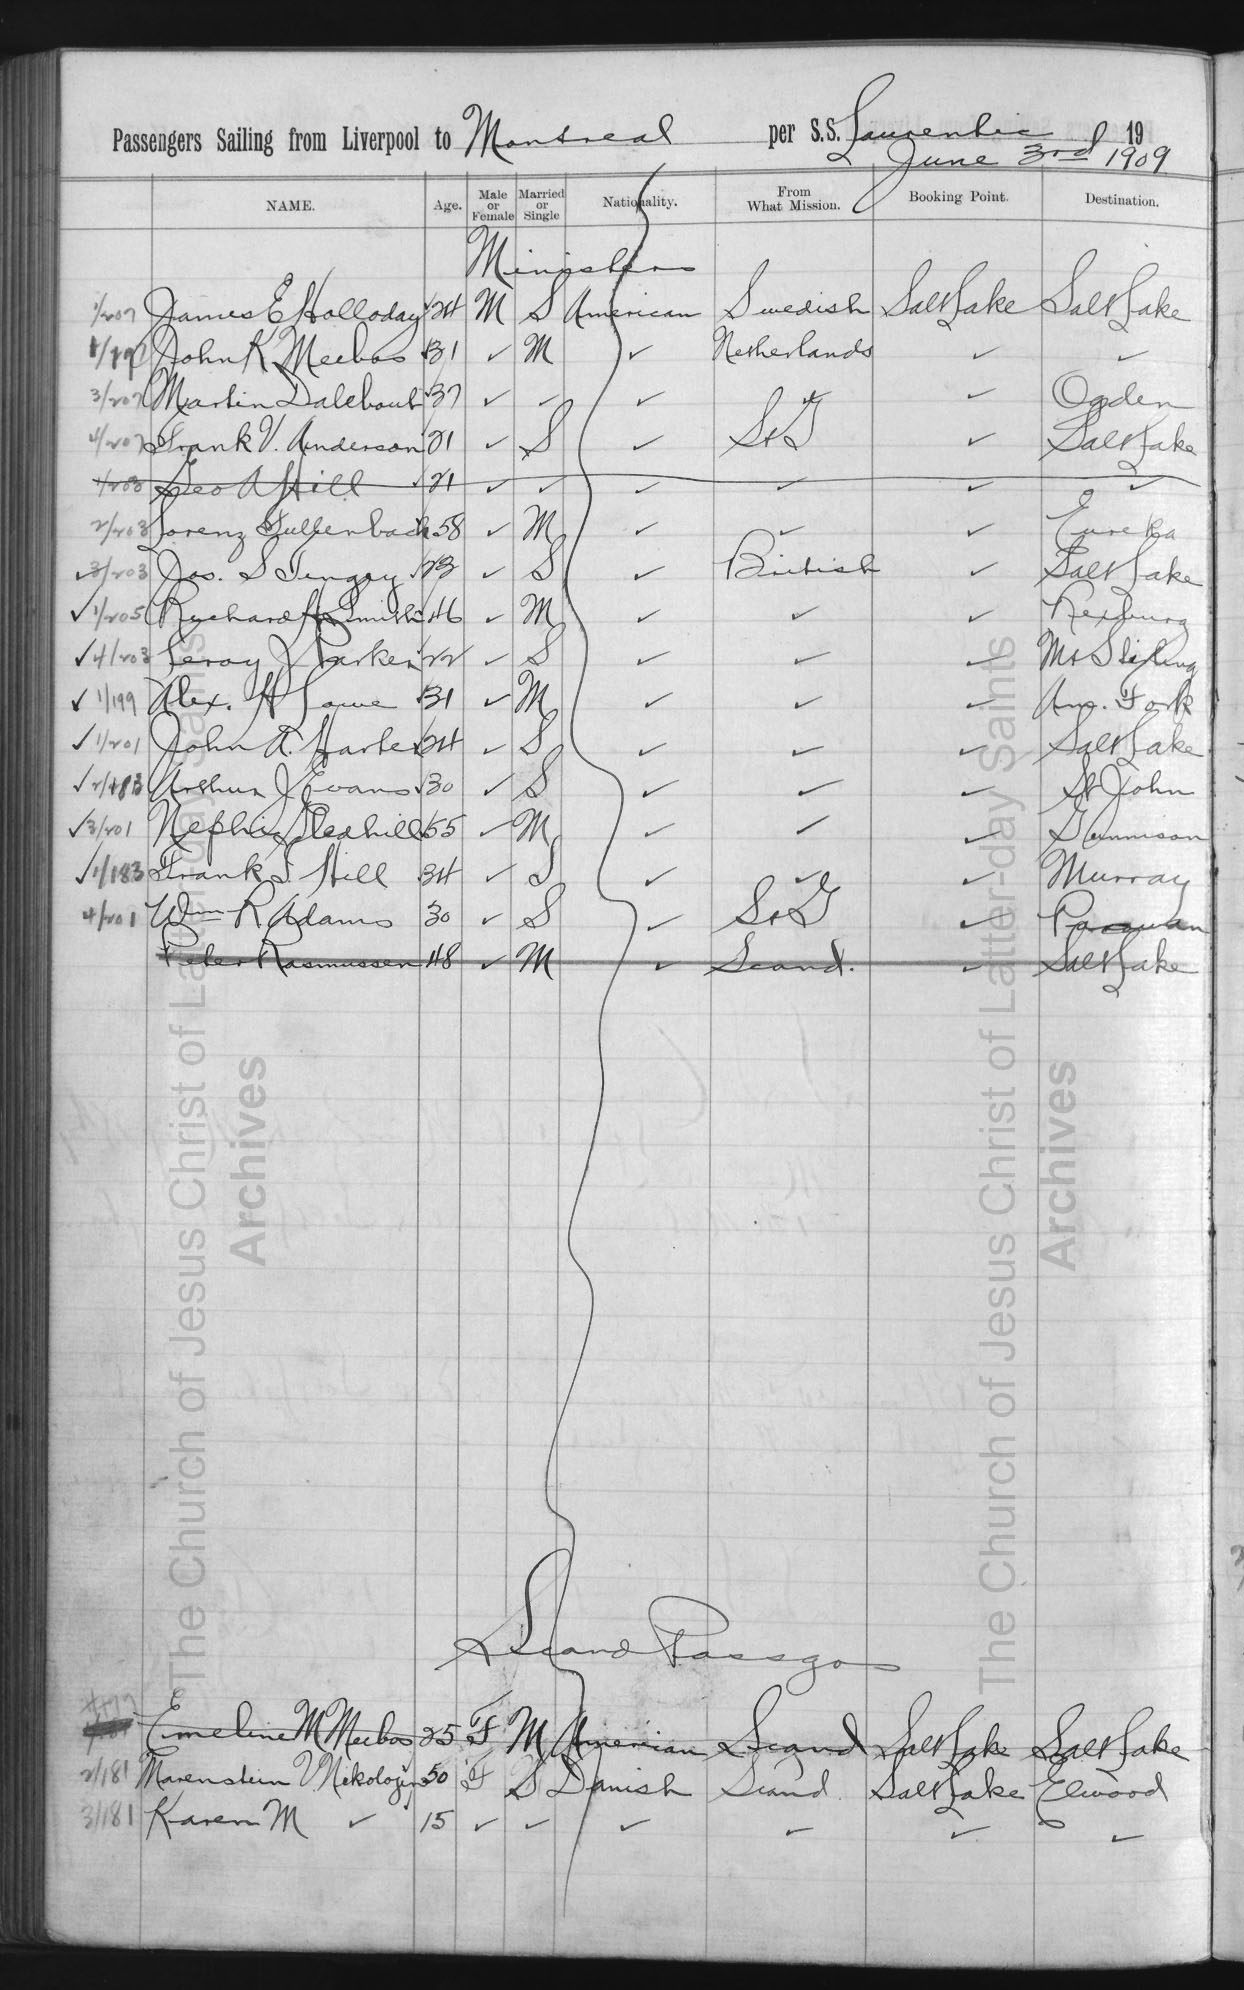 Passengers Sailing from Liverpool to Montreal per S.S. Laurentic 19
June 3rd 1909
NAME. Age. Male or Female Married or Single Nationality. From What Mission. Booking Point. Destination.
Ministers
1/207 James E Holloday 24 M S American Swedish Salt Lake Salt Lake
John K Meebos 31 ✓ M ✓ Netherlands ✓ ✓
3/207 Martin Dalebout 37 ✓ ✓ ✓ ✓ Ogden
4/207 Frank V. Anderson 21 ✓ S ✓ S & G ✓ Salt Lake
1/203 Geo A Hill 21 ✓ ✓ ✓ ✓ ✓ ✓
2/203 Lorenz 58 ✓ M ✓ ✓ ✓ Eureka
✓ 3/203 Jos. S Tengay 23 ✓ S ✓ British ✓ Salt Lake
✓ 1/205 Richard Smith 46 ✓ M ✓ ✓ ✓ Rexburg
✓ 4/203 Leroy J Parker 22 ✓ S ✓ ✓ ✓ Mt
✓ 1/199 Alex. H Lowe 31 ✓ M ✓ ✓ ✓ Am. Fork
✓ 1/201 John R. 24 ✓ S ✓ ✓ ✓ Salt Lake
✓ 2/183 Arthur J Evans 30 ✓ S ✓ ✓ ✓ St John
✓ 3/201 Nephi Gledhill 55 ✓ M ✓ ✓ ✓ Gunnison
✓ 1/183 Frank S. Hill 34 ✓ S ✓ ✓ ✓ Murray
4/201 Wm R Adams 30 ✓ S ✓ S & G ✓ Parowan
Peter Rasmussen 48 ✓ M ✓ Scand. ✓ Salt Lake
Scand Passgrs
Emeline M Meebos 25 F M American Scand Salt Lake Salt Lake
2/181 Marenstein V Nikolojin 50 F S Danish Scand. Salt Lake Elwood
3/181 Karen M ✓ 15 ✓ ✓ ✓ ✓ ✓ ✓
The Church of Jesus Christ of Latter-day Saints
Archives
The Church of Jesus Christ of Latter-day Saints
Archives